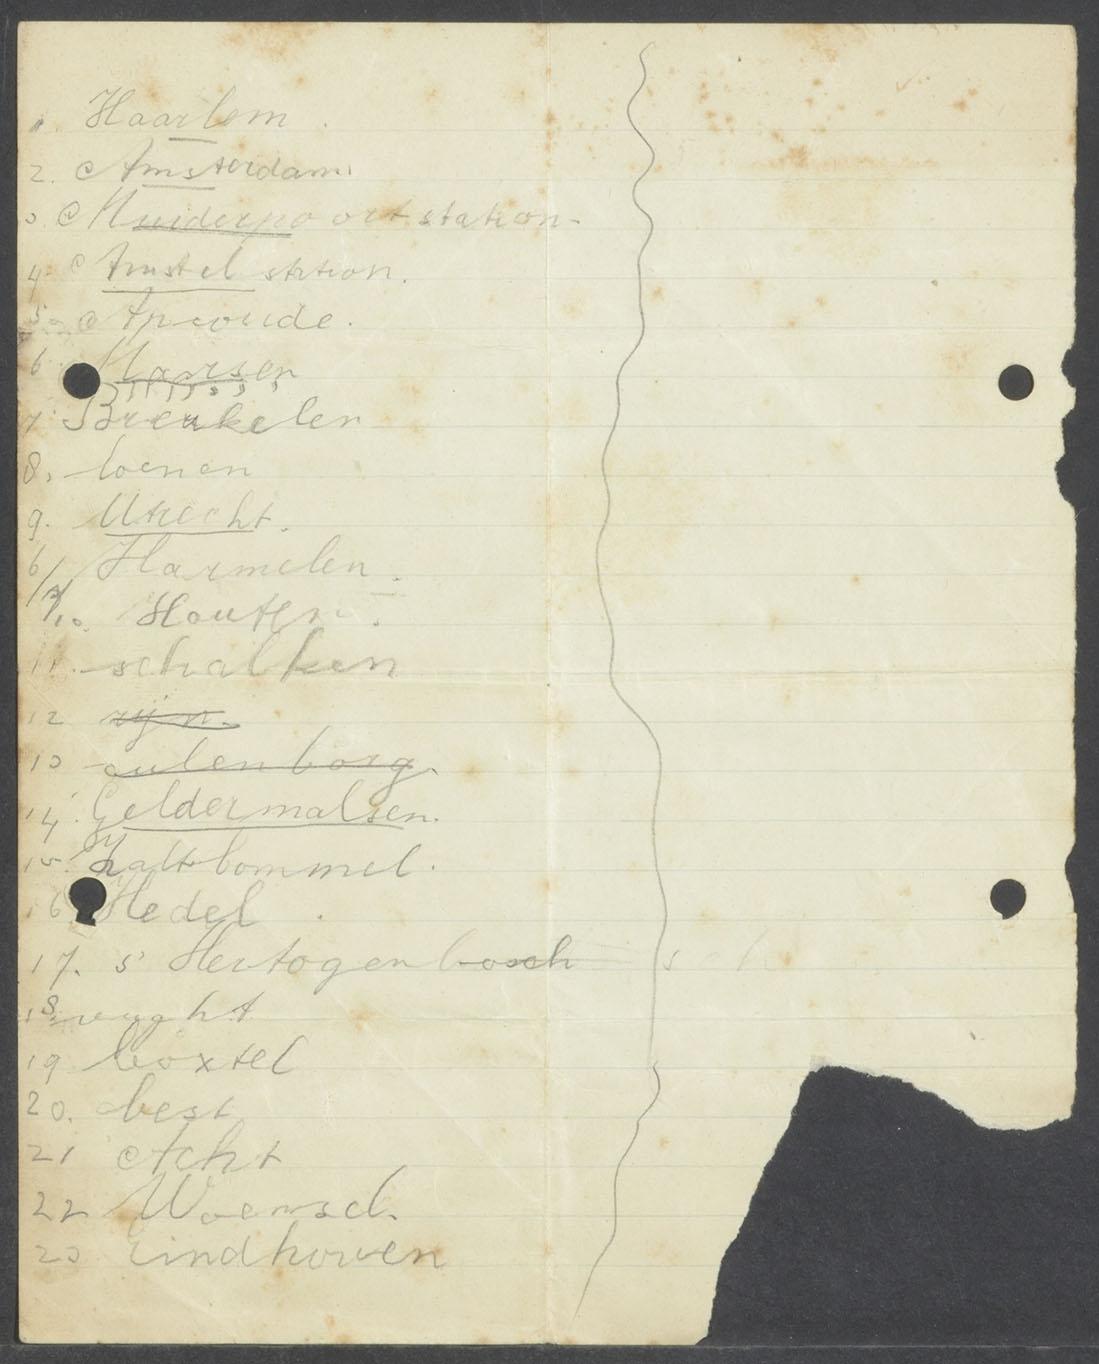 1. Haarlem.
2. Amsterdam.
3. Muiderpoortstation.
4. Amstel station.
5. Apcoude.
6. Maarsen
7. Breukelen
8. loenen
9. Utrecht.
6/ Harmelen.
10. Houten.
11. schalken
12 zijn.
13 culenborg.
14. Geldermalsen.
15. Zaltbommel.
16 Hedel.
17. s' Hertogenbosch sch
18. vught
19 boxtel
20. best
21 Acht
22 Woensel.
23 Eindhoven